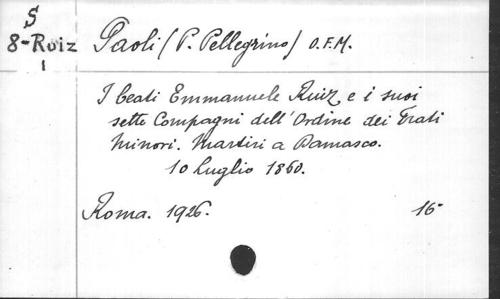 S
8-Ruiz
1
Paoli (P. Pellegrino) O.F.M.
I beati Emmanuele Ruiz e i suoi
sette Compagni dell'Ordine dei Frati
Minori. Martiri a Damasco.
10 Luglio 1860.
Roma. 1926. 16°